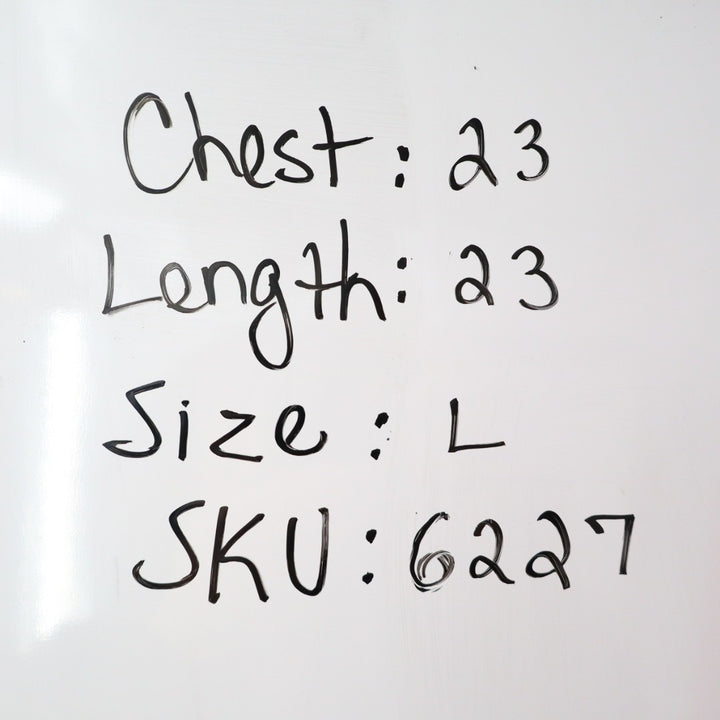 Chest: 23
Length: 23
Size: L
SKU: 6227